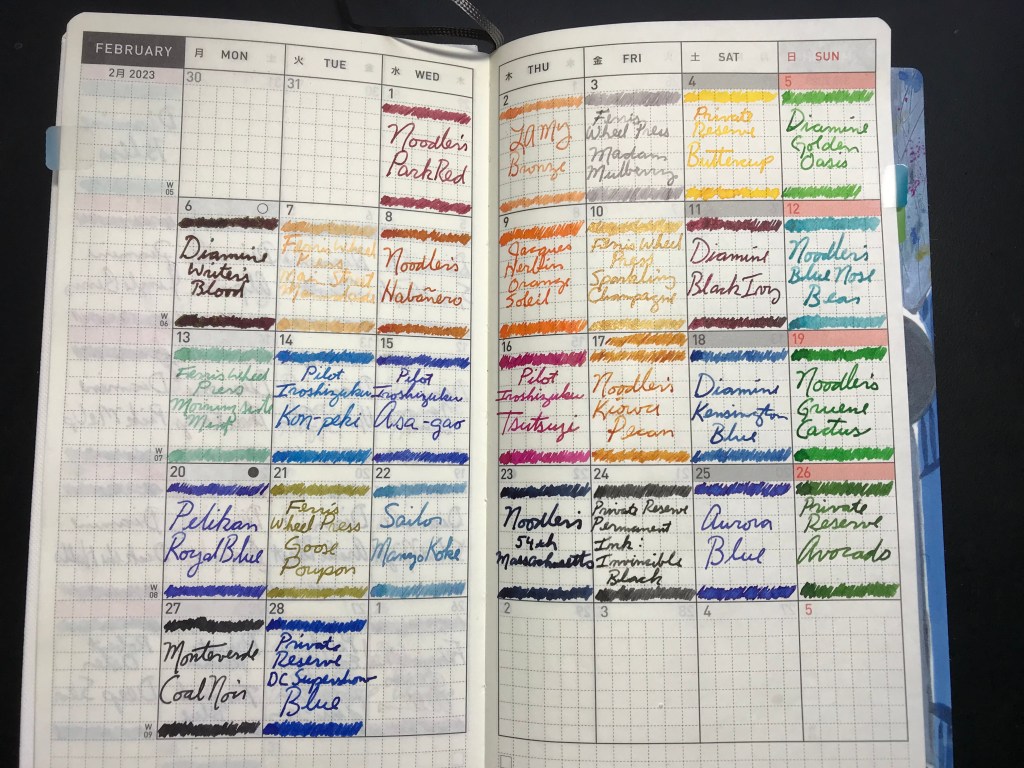 FEBRUARY
月 MON
火 TUE
水 WED
木 THU
金 FRI
土 SAT
日 SUN
2月 2023
30
31
1
Noodler's
Park Red
2
LAMY
Bronze
3
Ferris
Wheel Press
Madam
Mulberry
4
Private
Reserve
Buttercup
5
Diamine
Golden
Oasis
W
05
6
Diamine
Writer's
Blood
7
Ferris Wheel
Press
Main Street
Marmalade
8
Noodler's
Habañero
9
Jacques
Herbin
Orange
Soleil
10
Ferris Wheel
Press
Sparkling
Champagne
11
Diamine
Black Ivy
12
Noodler's
Blue Nose
Bear
W
06
13
Ferris Wheel
Press
Morningside
Mint
14
Pilot
Iroshizuku
Kon-peki
15
Pilot
Iroshizuku
Asa-gao
16
Pilot
Iroshizuku
Tsutsuji
17
Noodler's
Kiowa
Pecan
18
Diamine
Kensington
Blue
19
Noodler's
Gruene
Cactus
W
07
20
Pelikan
Royal Blue
21
Ferris
Wheel Press
Goose
Poupon
22
Sailor
Manyo Koke
23
Noodler's
54th
Massachusetts
24
Private Reserve
Permanent
Ink:
Invincible
Black
25
Aurora
Blue
26
Private
Reserve
Avocado
W
08
27
Monteverde
Coal Noir
28
Private
Reserve
DC Supershow
Blue
1
2
3
4
5
W
09